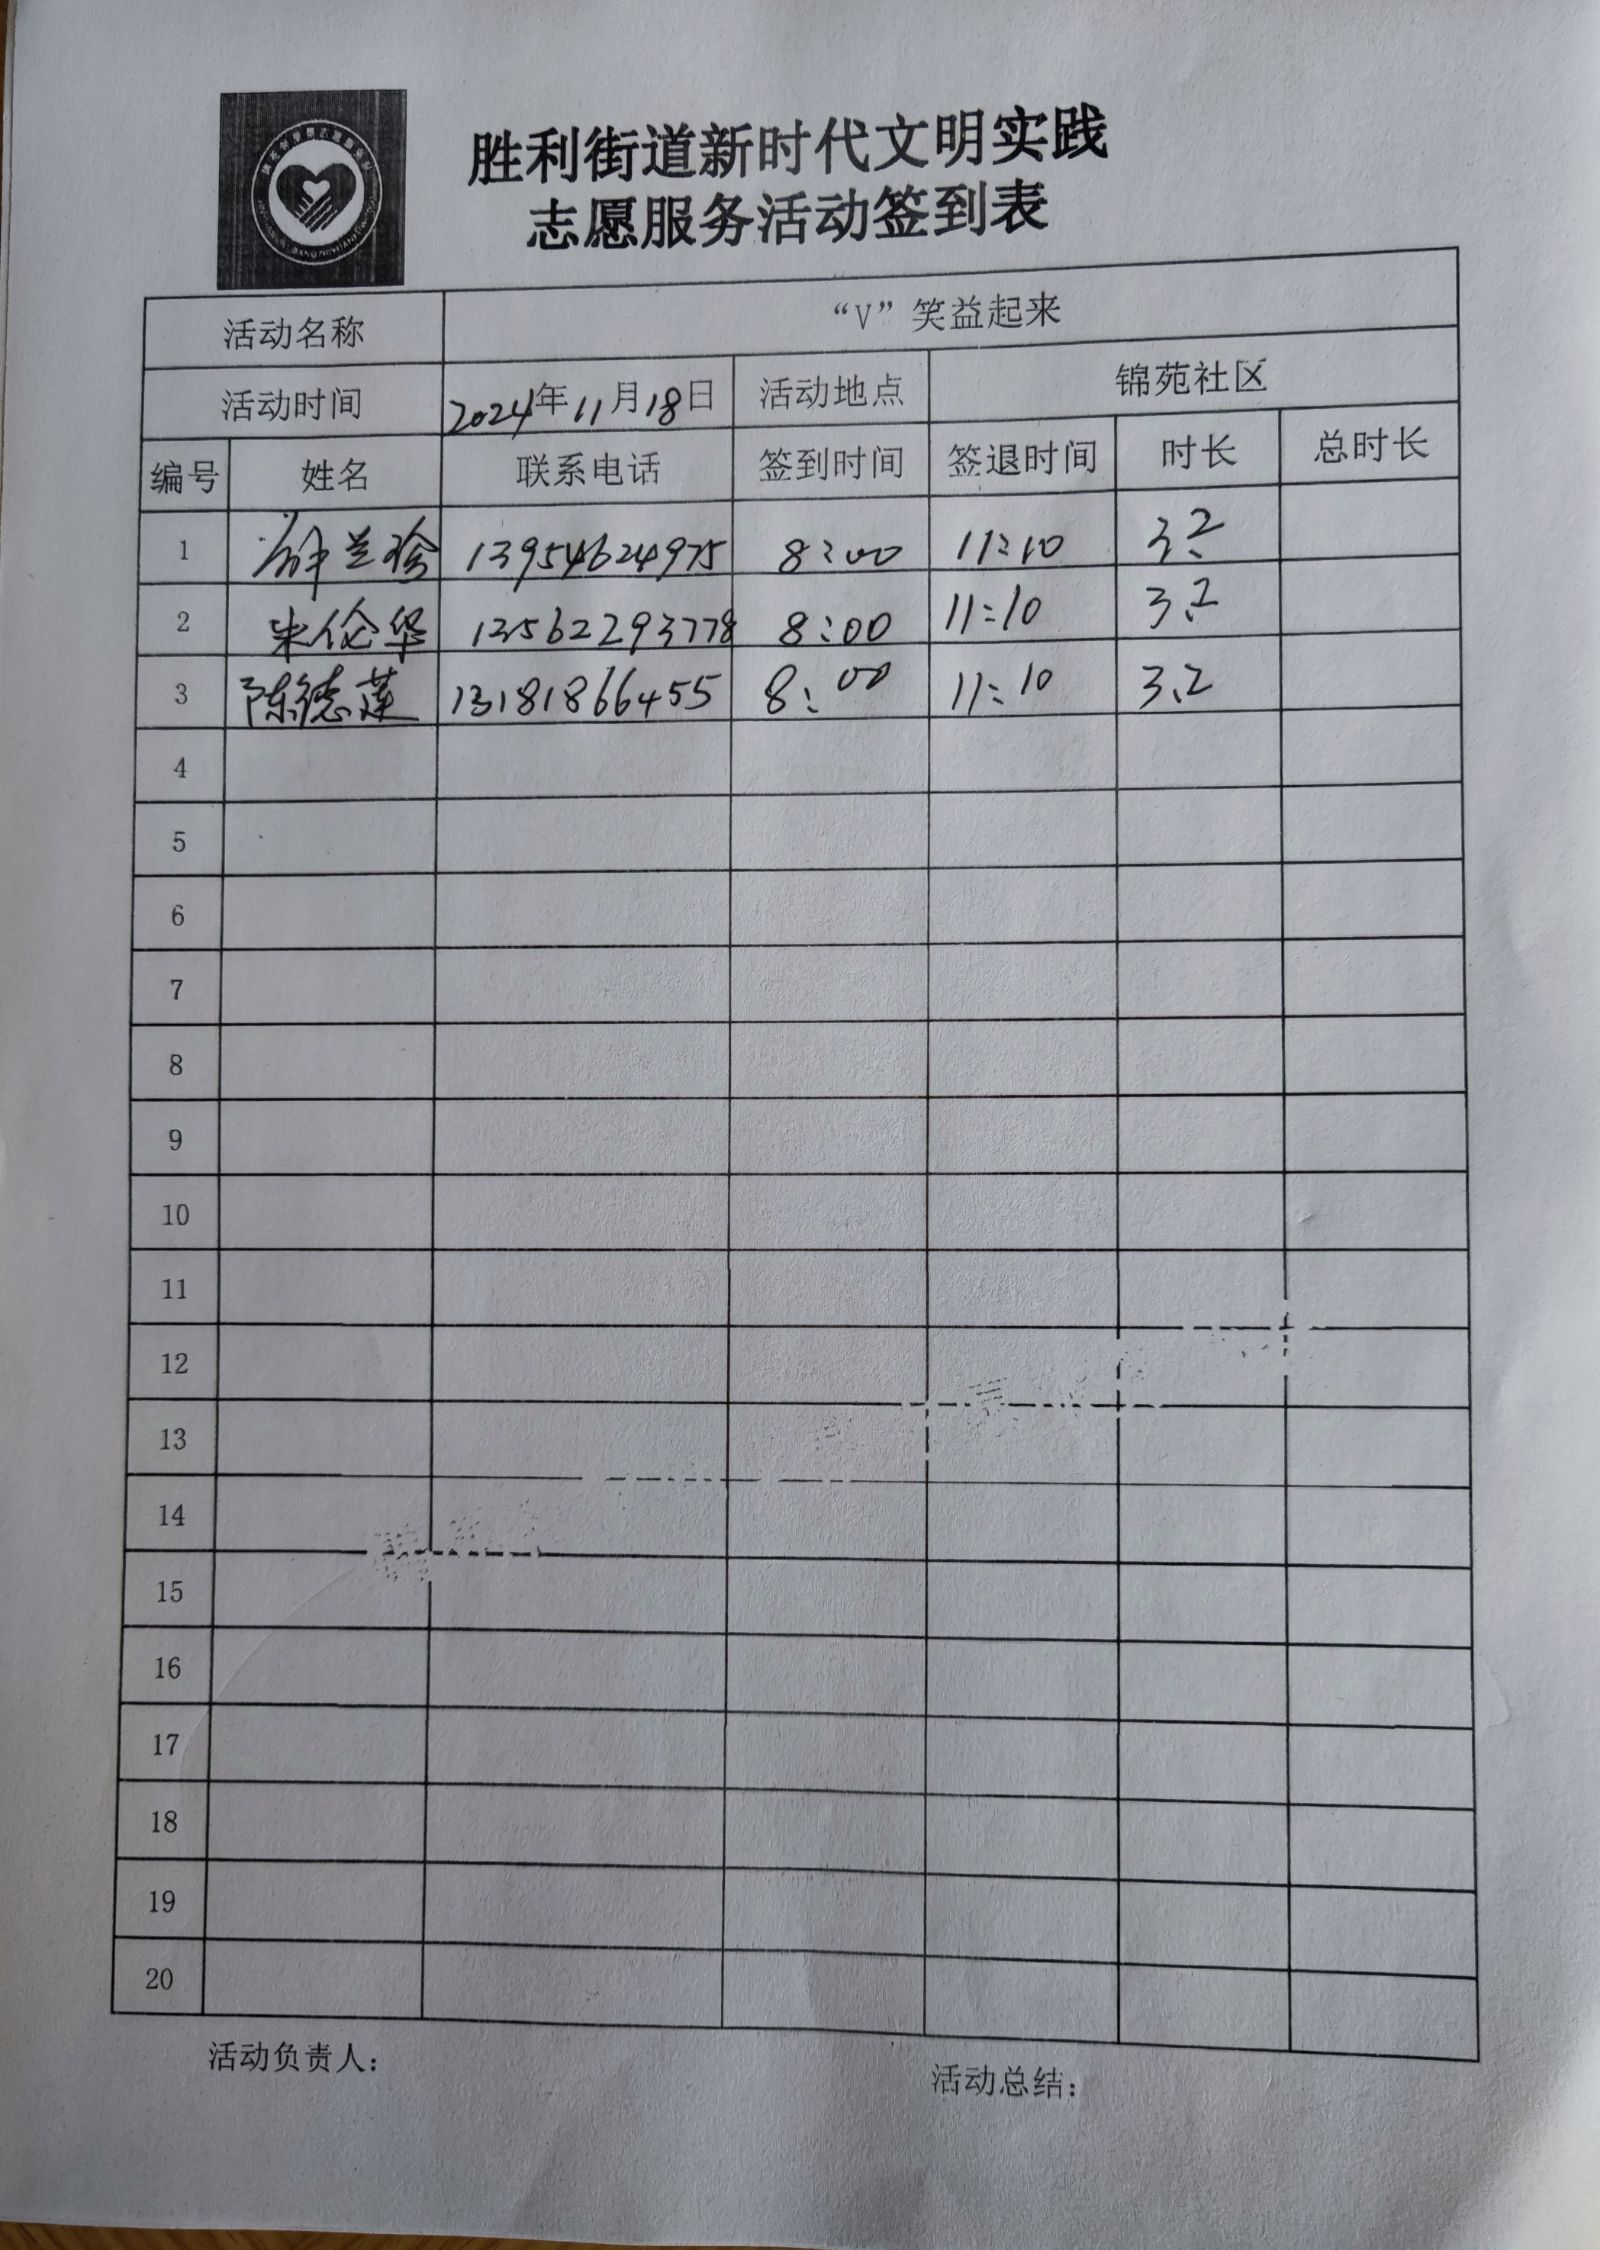 胜利街道新时代文明实践
志愿服务活动签到表
活动名称 “V”笑益起来
活动时间 2024年11月18日 活动地点 锦苑社区
编号 姓名 联系电话 签到时间 签退时间 时长 总时长
1 兰珍 13954624975 8:00 11:10 3.2
2 朱伦华 13562293778 8:00 11:10 3.2
3 陈德莲 13181866455 8:00 11:10 3.2
4
5
6
7
8
9
10
11
12
13
14
15
16
17
18
19
20
活动负责人： 活动总结：